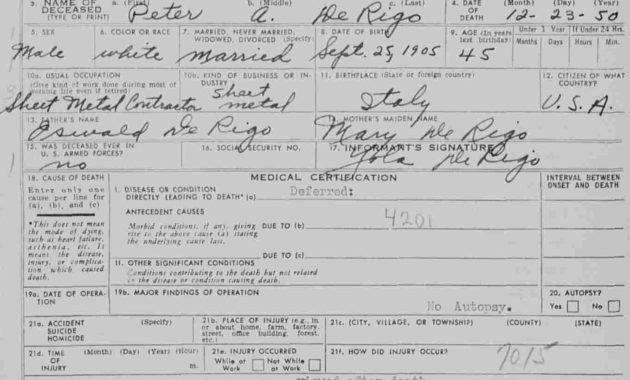 3. NAME OF DECEASED (TYPE OR PRINT) a. (First) Peter b. (Middle) A. c. (Last) De Rigo 4. DATE OF DEATH (Month) (Day) (Year) 12-23-50
5. SEX Male 6. COLOR OR RACE white 7. MARRIED, NEVER MARRIED, WIDOWED, DIVORCED (Specify) married 8. DATE OF BIRTH Sept. 25, 1905 9. AGE (In years last birthday) 45 Under 1 Year Months Days If Under 24 Hrs. Hours Min.
10a. USUAL OCCUPATION (Give kind of work done during most of working life even if retired) Sheet Metal Contractor 10b. KIND OF BUSINESS OR INDUSTRY Sheet metal 11. BIRTHPLACE (State or foreign country) Italy 12. CITIZEN OF WHAT COUNTRY? U.S.A.
13. FATHER'S NAME Oswald De Rigo 14. MOTHER'S MAIDEN NAME Mary De Rigo
15. WAS DECEASED EVER IN U. S. ARMED FORCES? no 16. SOCIAL SECURITY NO. 17. INFORMANT'S SIGNATURE De Rigo
18. CAUSE OF DEATH MEDICAL CERTIFICATION INTERVAL BETWEEN ONSET AND DEATH
Enter only one cause per line for (a), (b), and (c)
I. DISEASE OR CONDITION DIRECTLY LEADING TO DEATH* (a) Deferred:
*This does not mean the mode of dying, such as heart failure, asthenia, etc. It means the disease, injury, or complication which caused death.
ANTECEDENT CAUSES
Morbid conditions, if any, giving rise to the above cause (a) stating the underlying cause last. DUE TO (b) 4201
DUE TO (c)
II. OTHER SIGNIFICANT CONDITIONS
Conditions contributing to the death but not related to the disease or condition causing death.
19a. DATE OF OPERATION 19b. MAJOR FINDINGS OF OPERATION No Autopsy. 20. AUTOPSY? Yes No
21a. ACCIDENT SUICIDE HOMICIDE (Specify) 21b. PLACE OF INJURY (e.g., in or about home, farm, factory, street, office building, forest, etc.) 21c. (CITY, VILLAGE, OR TOWNSHIP) (COUNTY) (STATE)
21d. TIME OF INJURY (Month) (Day) (Year) (Hour) m. 21e. INJURY OCCURRED While at Work Not While at Work 21f. HOW DID INJURY OCCUR? 7015
after death